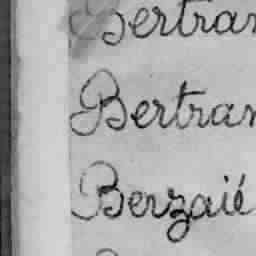 Bertran
Bertran
Berzaié